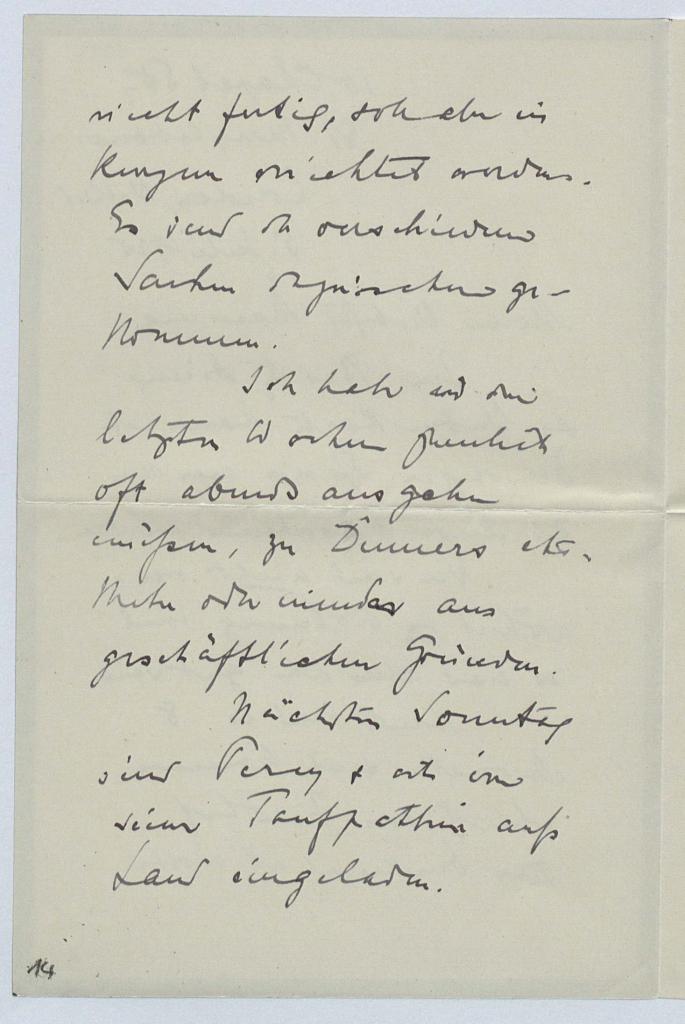 nicht fertig, soll aber in
Kurzem errichtet werden.
Es sind da verschiedene
Sachen dazwischen ge-
kommen.
Ich habe in den
letzten Wochen ziemlich
oft abends ausgehen
müßen, zu Dinners etc.
Mehr oder minder aus
geschäftlichen Gründen.
Nächsten Sonntag
sind Percy + ich von
seiner Taufpathin aufs
Land eingeladen.
14